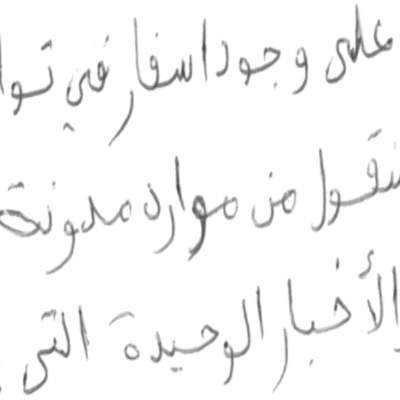 على وجود اسفار في توا
منقول من موارد مدونة
والأخبار الوحيدة التي